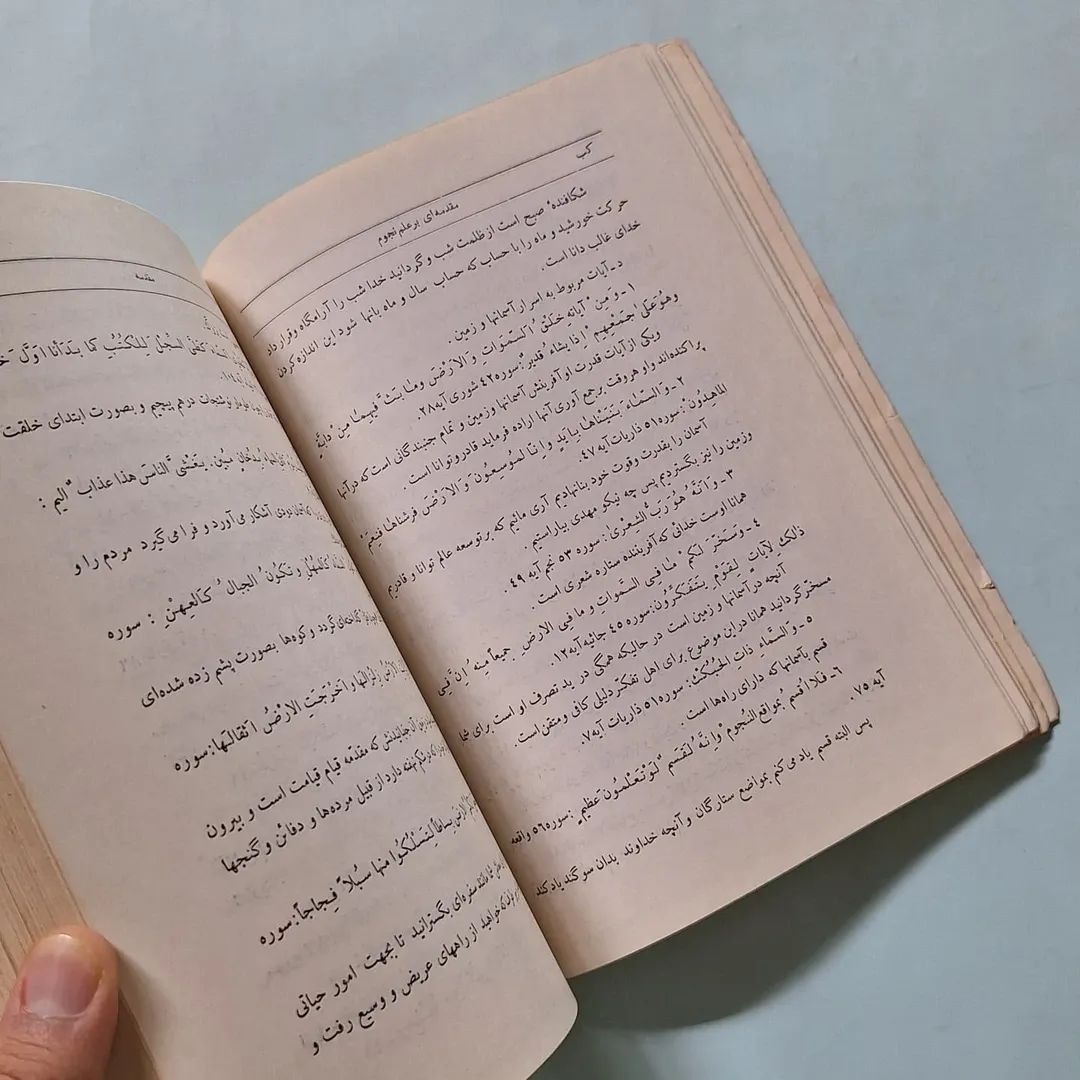 کب
مقدمه‌ای بر علم نجوم
شکافنده صبح است از ظلمت شب و گردانید خدا شب را آرامگاه و قرار داد
حرکت خورشید و ماه را با حساب که حساب سال و ماه بآنها شود این اندازه کردن
خدای غالب دانا است.
د ـ آیات مربوط به اسرار آسمانها و زمین.
۱ ـ وَمِنْ آیاتِهِ خَلْقُ السَّمٰوٰاتِ وَ الْاَرْضِ وَمٰا بَثَّ فیهِمٰا مِنْ دابَّةٍ
وهُوَ عَلی جَمْعِهِمْ اِذا یَشاءُ قَدیرٌ: سوره ۴۲ شوری آیه ۲۸.
ویکی از آیات قدرت او آفرینش آسمانها و زمین و تمام جنبندگانی است که در آنها
پراکنده‌اند و او هر وقت بر جمع آوری آنها اراده فرماید قادر و توانا است.
۲ ـ وَالسَّمٰاءَ بَنَیْنٰاهٰا بِاَیْدٍ وَ اِنّٰا لَمُوسِعُونَ وَ الْاَرْضَ فَرَشْنٰاهٰا فَنِعْمَ
الماهِدُونَ: سوره ۵۱ ذاریات آیه ۴۷.
آسمان را بقدرت و قوت خود بنانهادیم آری مائیم که بر توسعه عالم توانا و قادریم
وزمین را نیز بگستردیم پس چه نیکو مهدی بیاراستیم.
۳ ـ وَ اَنَّهُ هُوَ رَبُّ الشِّعْریٰ: سوره ۵۳ نجم آیه ۴۹.
همانا اوست خدائی که آفریننده ستاره شعری است.
۴ ـ وَسَخَّرَ لَکُمْ مٰا فِی السَّمٰوٰاتِ وَ ما فِی الارضِ جمیعاً مِنهُ اِنَّ فی
ذالِکَ لَآیاتٍ لِقَوْمٍ یَتَفَکَّرُونَ: سوره ۴۵ جاثیه آیه ۱۲.
آنچه در آسمانها و زمین است در حالیکه همگی در ید تصرف او است برای شما
مسخر گردانید همانا در این موضوع برای اهل تفکر دلیلی کافی و متقن است.
۵ ـ وَ السَّمٰاءِ ذاتِ الْحُبُکِ: سوره ۵۱ ذاریات آیه ۷.
قسم بآسمانها که دارای راه‌ها است.
۶ ـ فَلا اُقْسِمُ بِمَواقِعِ النُّجومِ وَ اِنَّهُ لَقَسَمٌ لَوْتَعْلَمُونَ عَظیمٌ: سوره ۵۶ واقعه
آیه ۷۵.
پس البته قسم یاد می‌کنم بمواضع ستارگان و آنچه خداوند بدان سوگند یاد کند
مقدمه
السِّجِلِّ لِلْکُتُبِ کَمٰا بَدَأنٰا اَوَّلَ
درهم پیچیم و بصورت ابتدای خلقت
بِدُخٰانٍ مُبین. یَغْشَی النّاسَ هذا عذابٌ الیم:
دودی آشکار می‌آورد و فرا می‌گیرد مردم را و
کَالْمُهْلِ وَ تَکُونُ الْجِبالُ کَالْعِهْنِ: سوره
گردد و کوه‌ها بصورت پشم زده شده‌ای
زِلْزٰالَهٰا وَ اَخْرَجَتِ الْاَرْضُ اَثْقٰالَهٰا: سوره
که مقدمه قیام قیامت است و بیرون
دارد از قبیل مرده‌ها و دفائن و گنجها
بِسٰاطاً لِتَسْلُکُوا مِنها سُبُلاً فِجٰاجاً: سوره
سفره‌ای بگسترانید تا بجهت امور حیاتی
خواهید از راههای عریض و وسیع رفت و